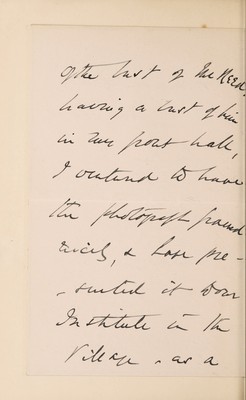 of the bust of Mr Reed,
having a bust of him
in our front hall,
I intend to have
the photograph framed
nicely, & have pre-
-sented it to our
Institute in the
Village - as a